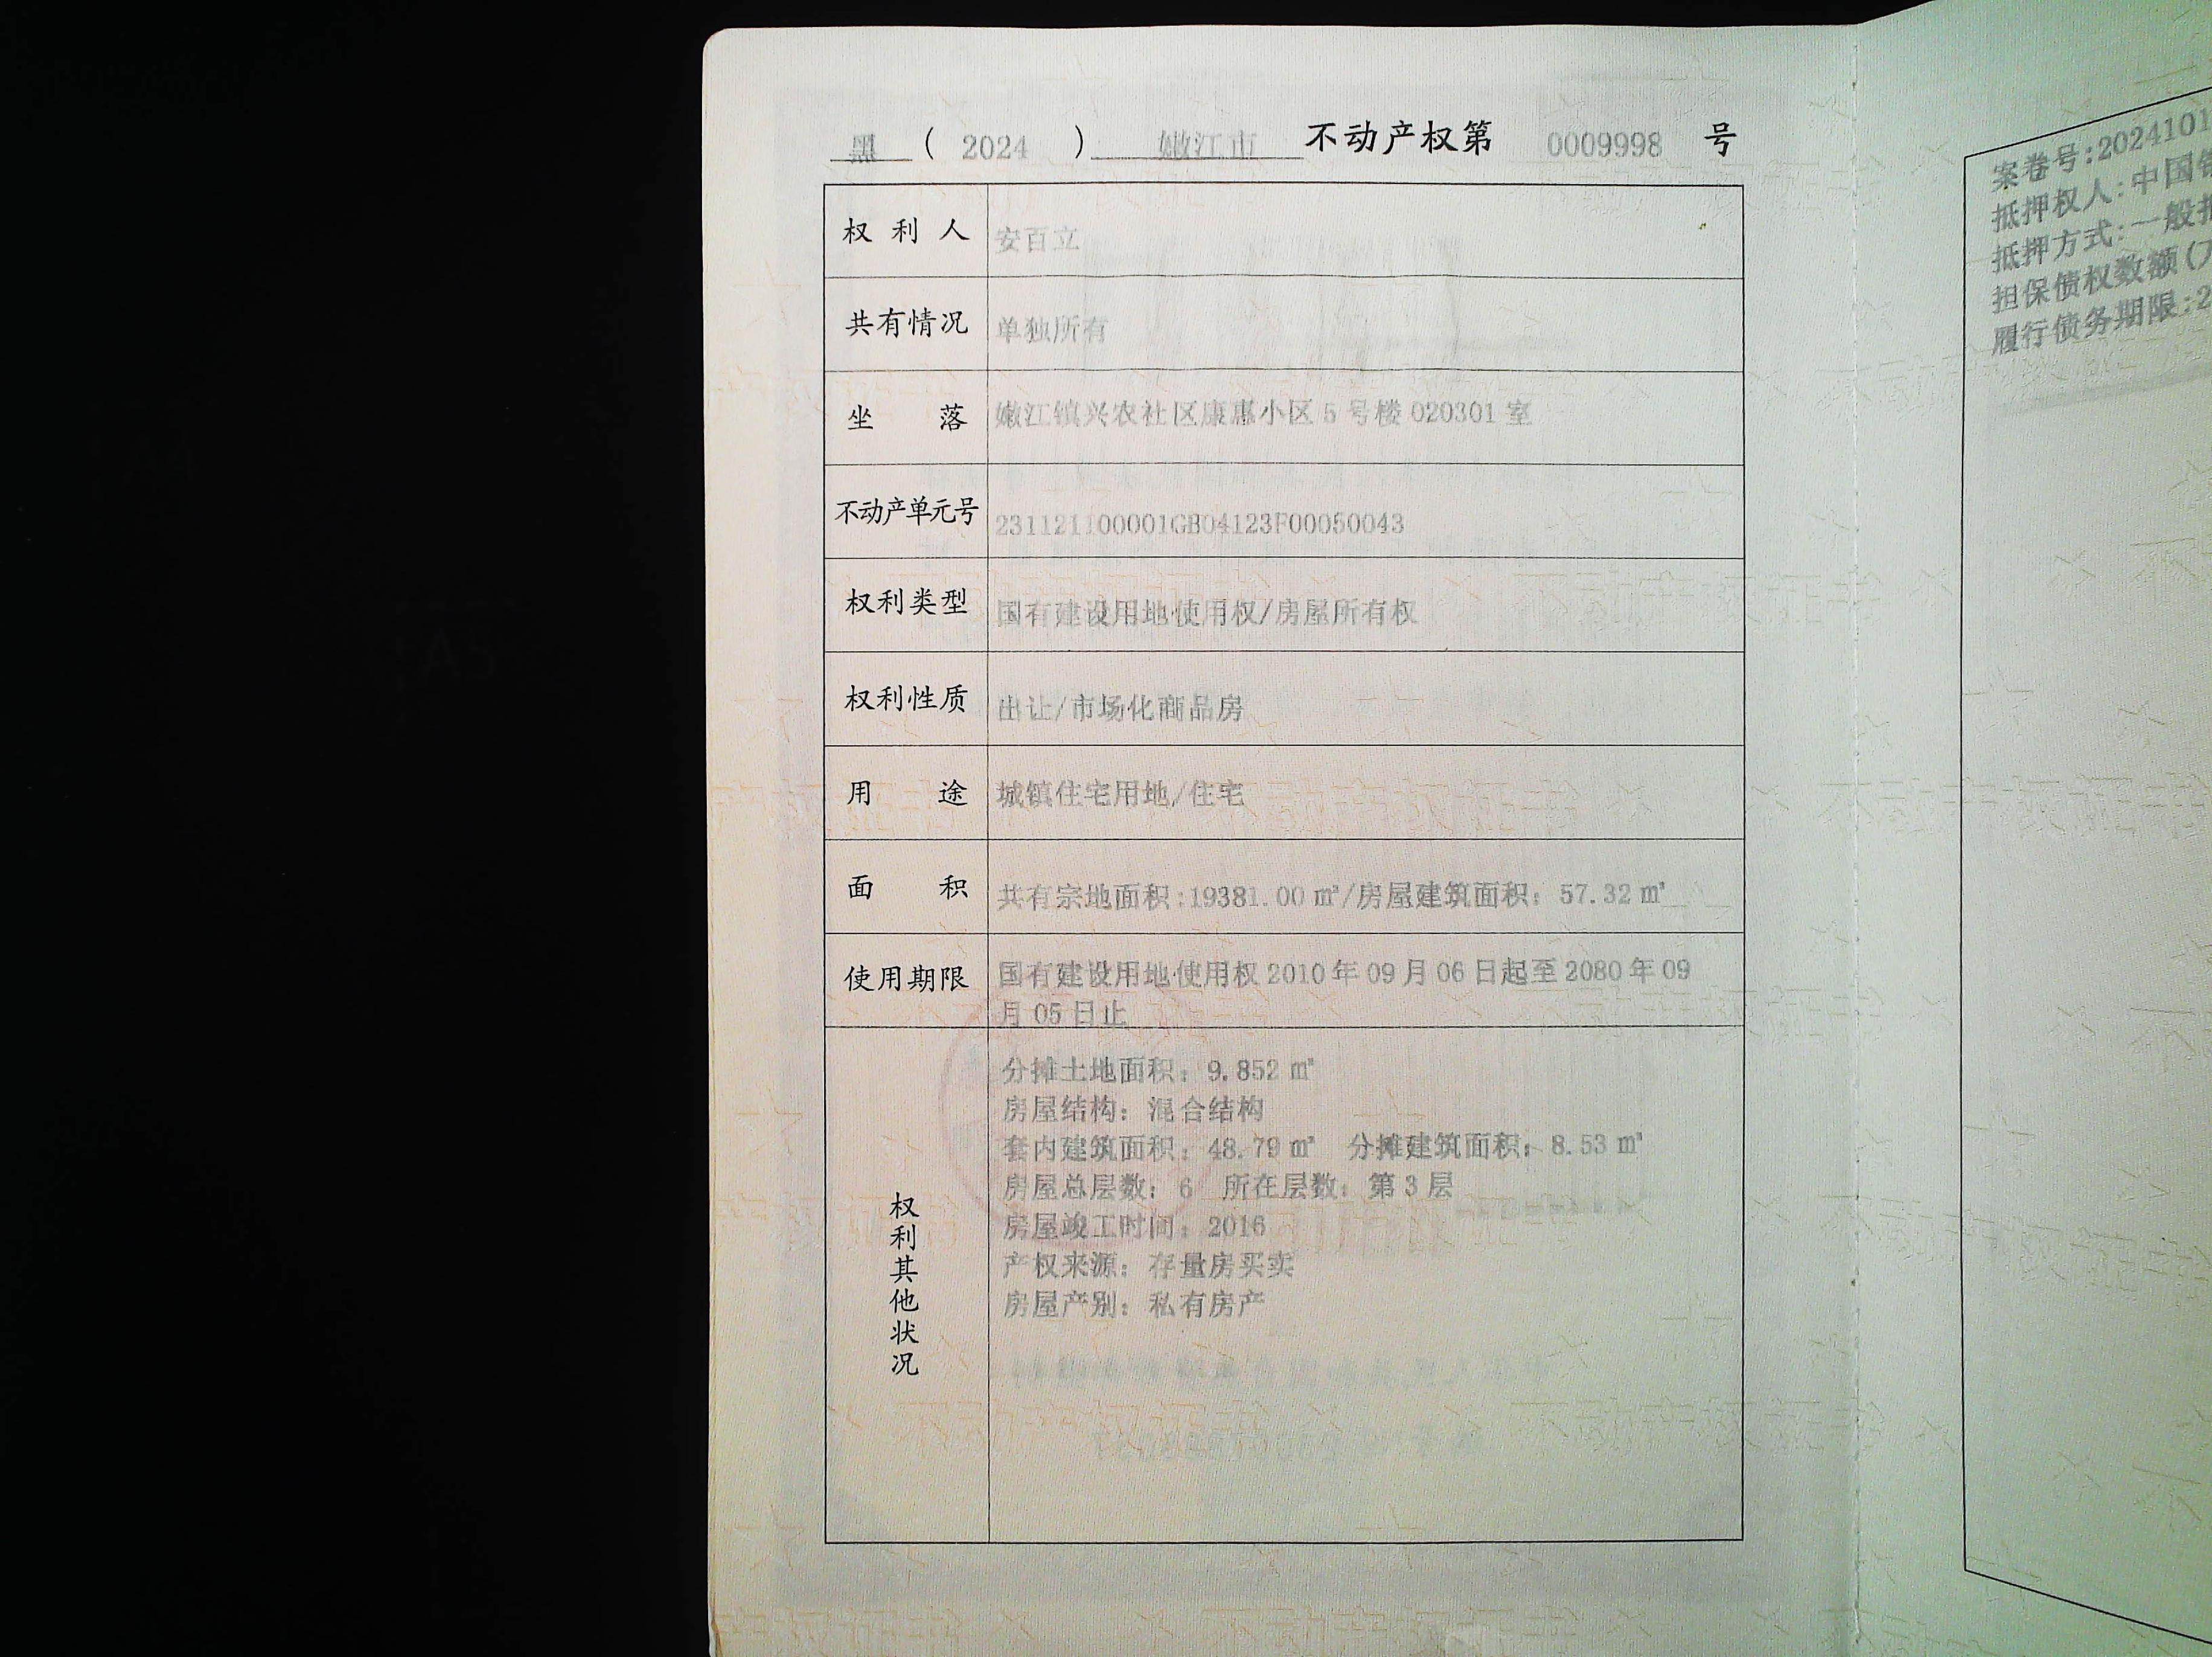 黑 ( 2024 ) 嫩江市 不动产权第 0009998 号
权利人 安百立
共有情况 单独所有
坐落 嫩江镇兴农社区康惠小区5号楼020301室
不动产单元号 231121100001GB04123F00050043
权利类型 国有建设用地使用权/房屋所有权
权利性质 出让/市场化商品房
用途 城镇住宅用地/住宅
面积 共有宗地面积:19381.00㎡/房屋建筑面积：57.32㎡
使用期限 国有建设用地使用权2010年09月06日起至2080年09
月05日止
权利其他状况
分摊土地面积：9.852㎡
房屋结构：混合结构
套内建筑面积：48.79㎡ 分摊建筑面积：8.53㎡
房屋总层数：6 所在层数：第3层
房屋竣工时间：2016
产权来源：存量房买卖
房屋产别：私有房产
案卷号:2024101
抵押权人:中国
抵押方式:一般
担保债权数额(
履行债务期限:2